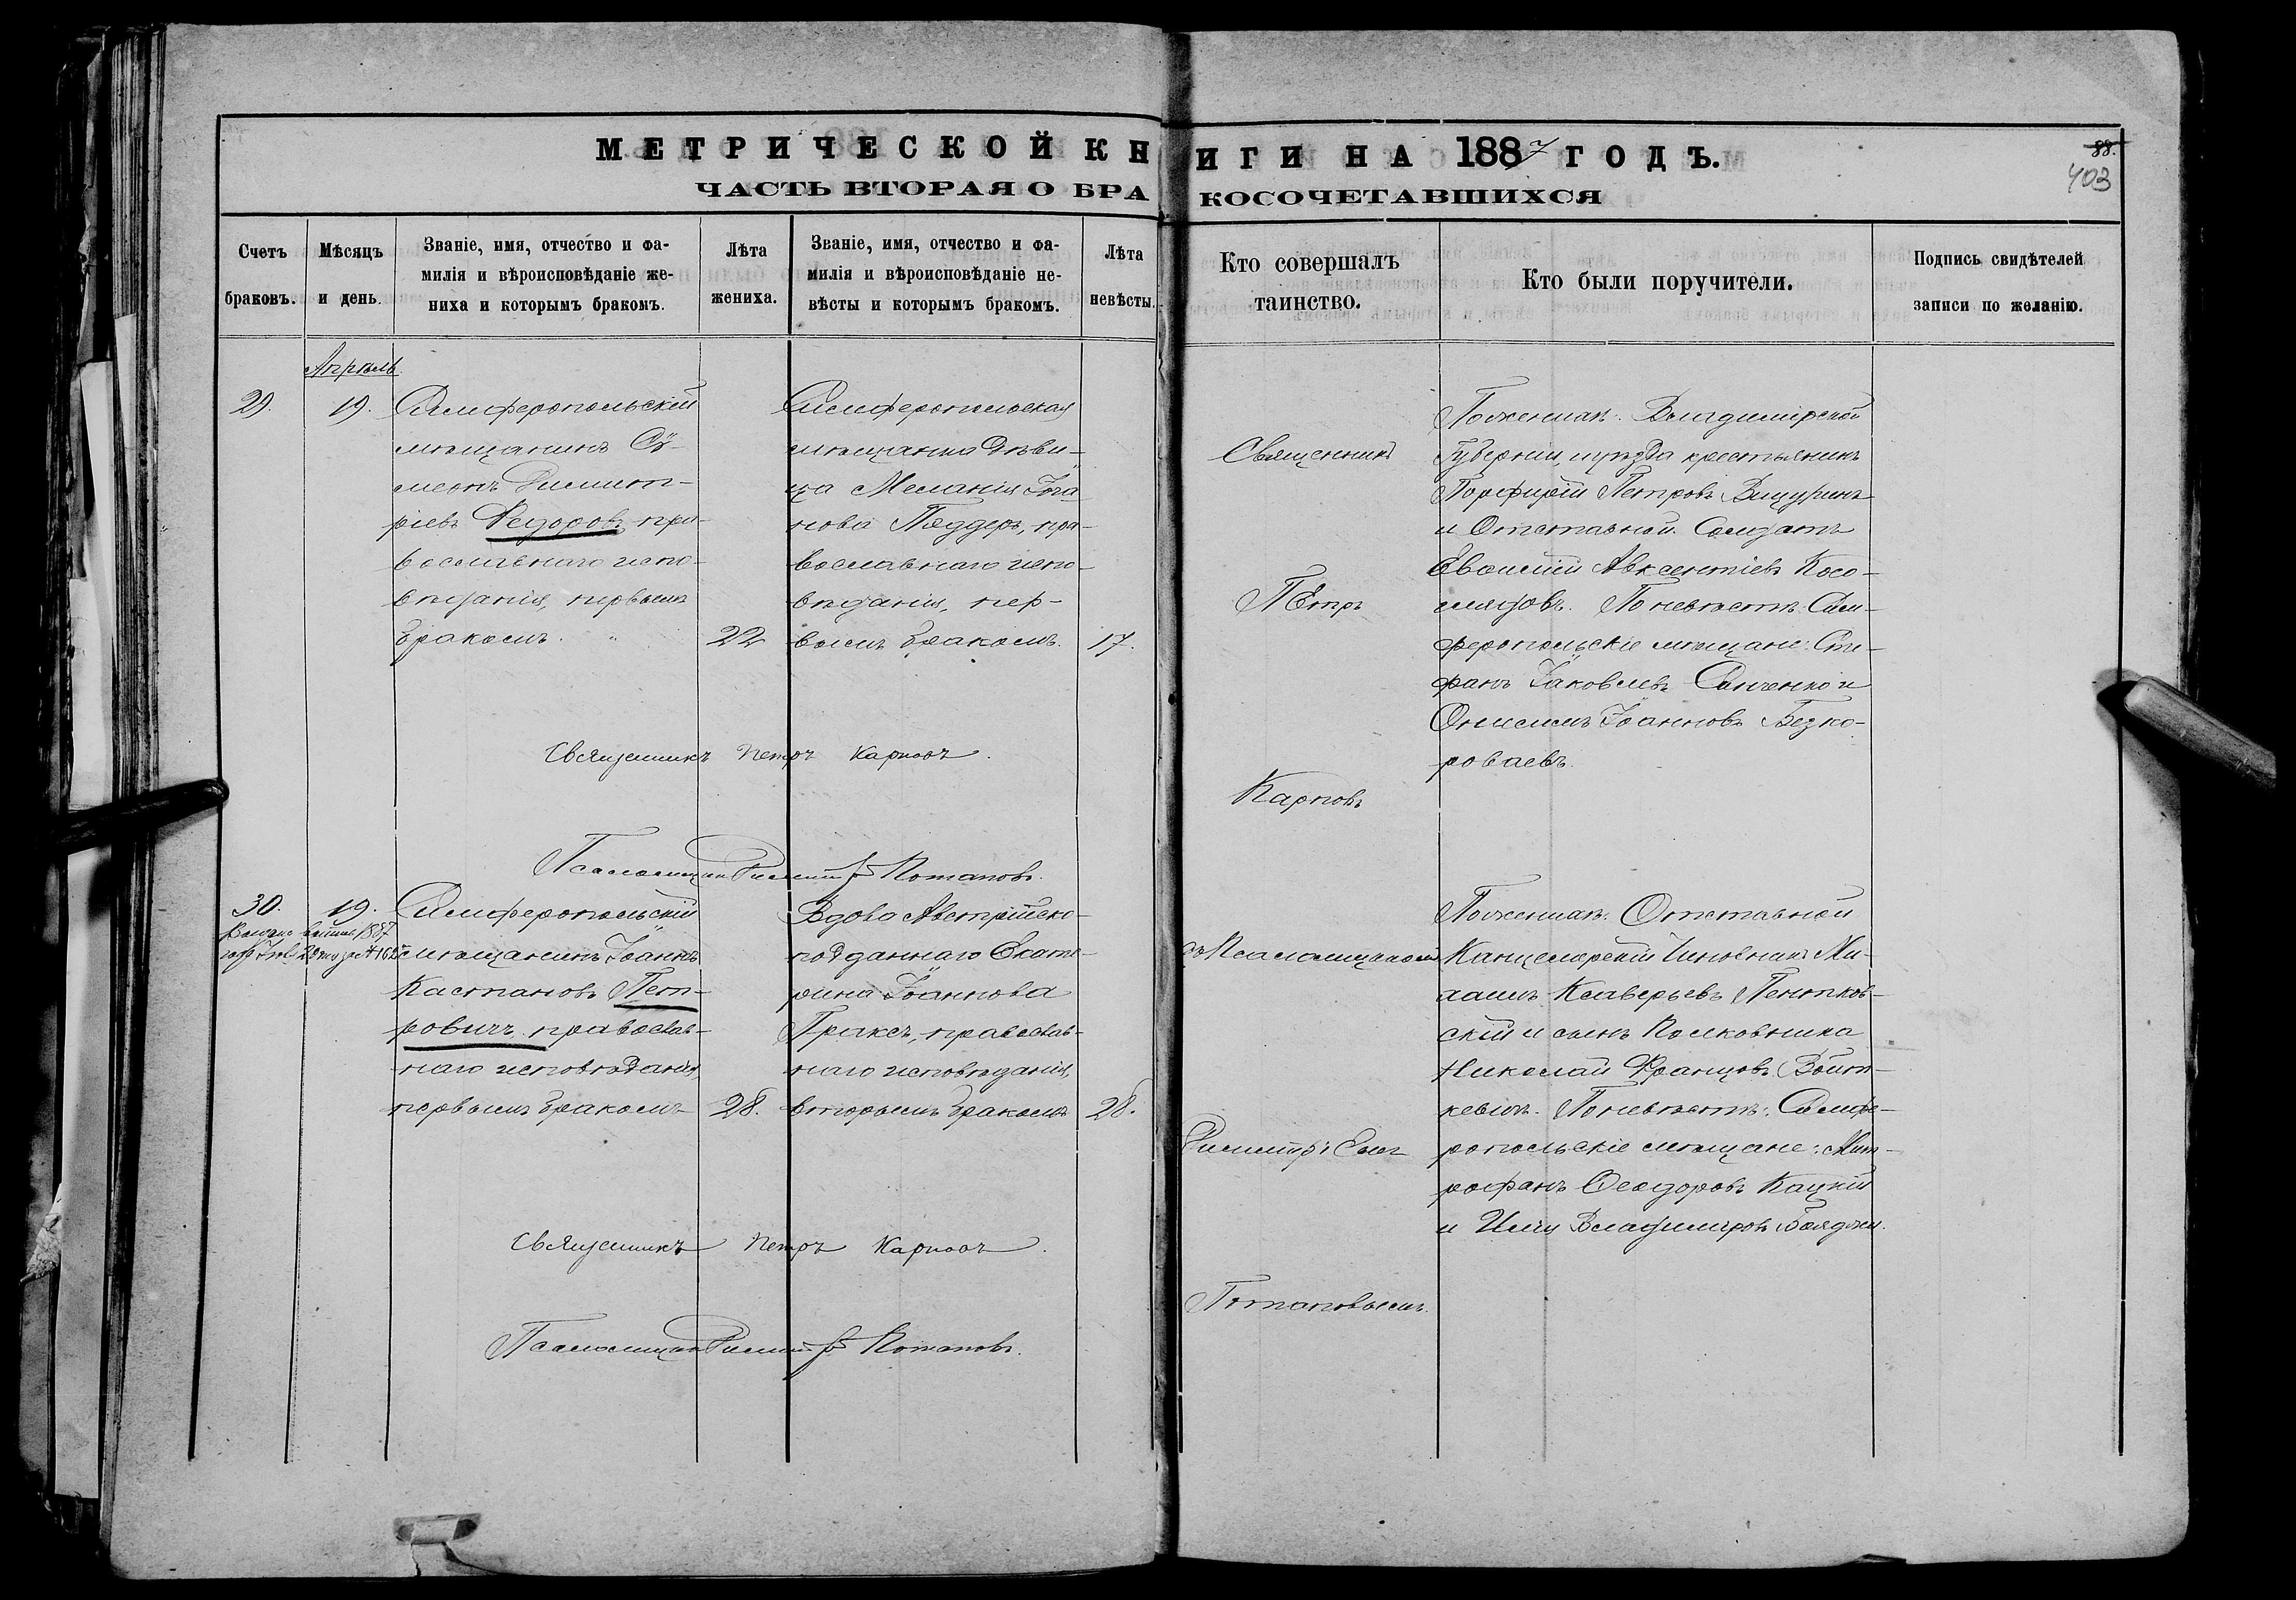 МЕТРИЧЕСКОЙ КНИГИ НА 1887 ГОДЪ.
ЧАСТЬ ВТОРАЯ О БРАКОСОЧЕТАВШИХСЯ
88.
403
Счетъ
браковъ.
Мѣсяцъ
и день.
Званіе, имя, отчество и фа-
милія и вѣроисповѣданіе же-
ниха и которымъ бракомъ.
Лѣта
жениха.
Званіе, имя, отчество и фа-
милія и вѣроисповѣданіе не-
вѣсты и которымъ бракомъ.
Лѣта
невѣсты.
Кто совершалъ
таинство.
Кто были поручители.
Подпись свидѣтелей
записи по желанію.
Апрѣль
29.
19.
Симферопольскій
мѣщанинъ Сѵ-
меонъ Димит-
ріевъ Ѳедоровъ, пра-
вославнаго испо-
вѣданія, первымъ
бракомъ.
22
Симферопольская
мѣщанка дѣви-
ца Меланія Іоа
нова Педдеръ, пра-
вославнаго испо-
вѣданія, пер-
вымъ бракомъ.
17.
Священникъ
Пётръ
Карповъ
По жениху: Владимірской
Губерніи, уѣзда крестьянинъ
Порфирій Петровъ
и Отставной Солдатъ
Авксентіевъ Косо-
лядовъ. По невѣстѣ: Сим-
феропольскіе мѣщане: Сте-
фанъ Іаковлевъ Санченко и
Онисимъ Іоанновъ Безко-
роваевъ.
Священникъ Петръ Карповъ.
Псаломщикъ Димитрій Потаповъ.
30.
19.
1887
Симферопольскій
мѣщанинъ Іоаннъ
Кастановъ Пет-
ровичъ, православ-
наго исповѣданія,
первымъ бракомъ
28.
Вдова Австрійско-
подданнаго Екате-
рина Іоаннова
Гракъ, православ-
наго исповѣданія,
вторымъ бракомъ
28.
съ Псаломщикомъ
Димитріемъ
Потаповымъ.
По жениху: Отставной
Канцелярскій Чиновникъ Ми-
хаилъ Ксаверьевъ Пентков-
скій и сынъ Полковника
Николай Францовъ Войт-
кевичъ. По невѣстѣ: Симфе-
ропольскіе мѣщане: Мит-
рофанъ Ѳеодоровъ Кацкій
и Илія Владиміровъ
Священникъ Петръ Карповъ.
Псаломщикъ Димитрій Потаповъ.